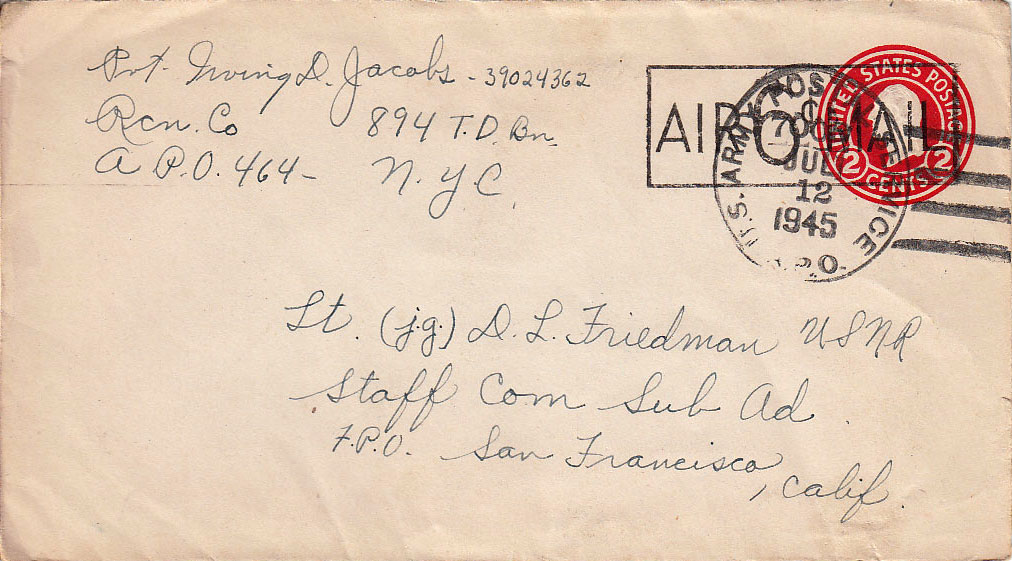 Pvt. Irving D. Jacobs - 39024362
Rcn. Co 894 T.D. Bn.
A P.O. 464- N.Y.C.
UNITED STATES POSTAGE
2 CENTS 2
AIR 6¢ MAIL
U.S. ARMY POSTAL SERVICE
A.P.O.
JUL
12
1945
Lt. (j.g.) D. L. Friedman USNR
Staff Com Sub Ad
F.P.O. San Francisco
, Calif